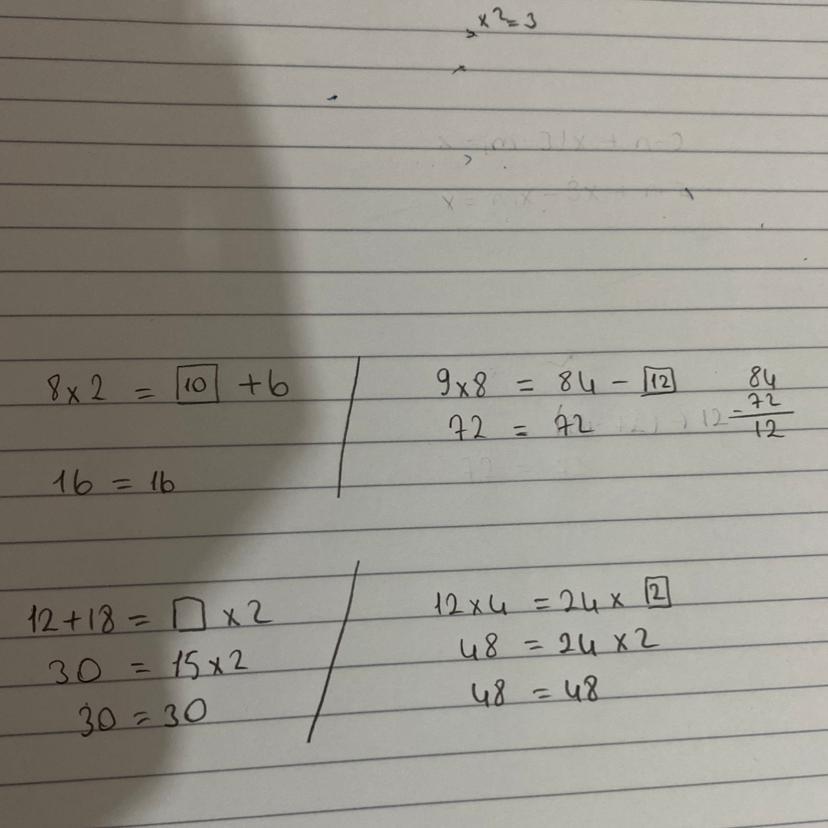 x2=3
8x2 = 10 +6
16 = 16
9x8 = 84 - 12
72 = 72
84
- 72
12
12+18 = □ x2
30 = 15x2
30 = 30
12x4 = 24x 2
48 = 24x2
48 = 48